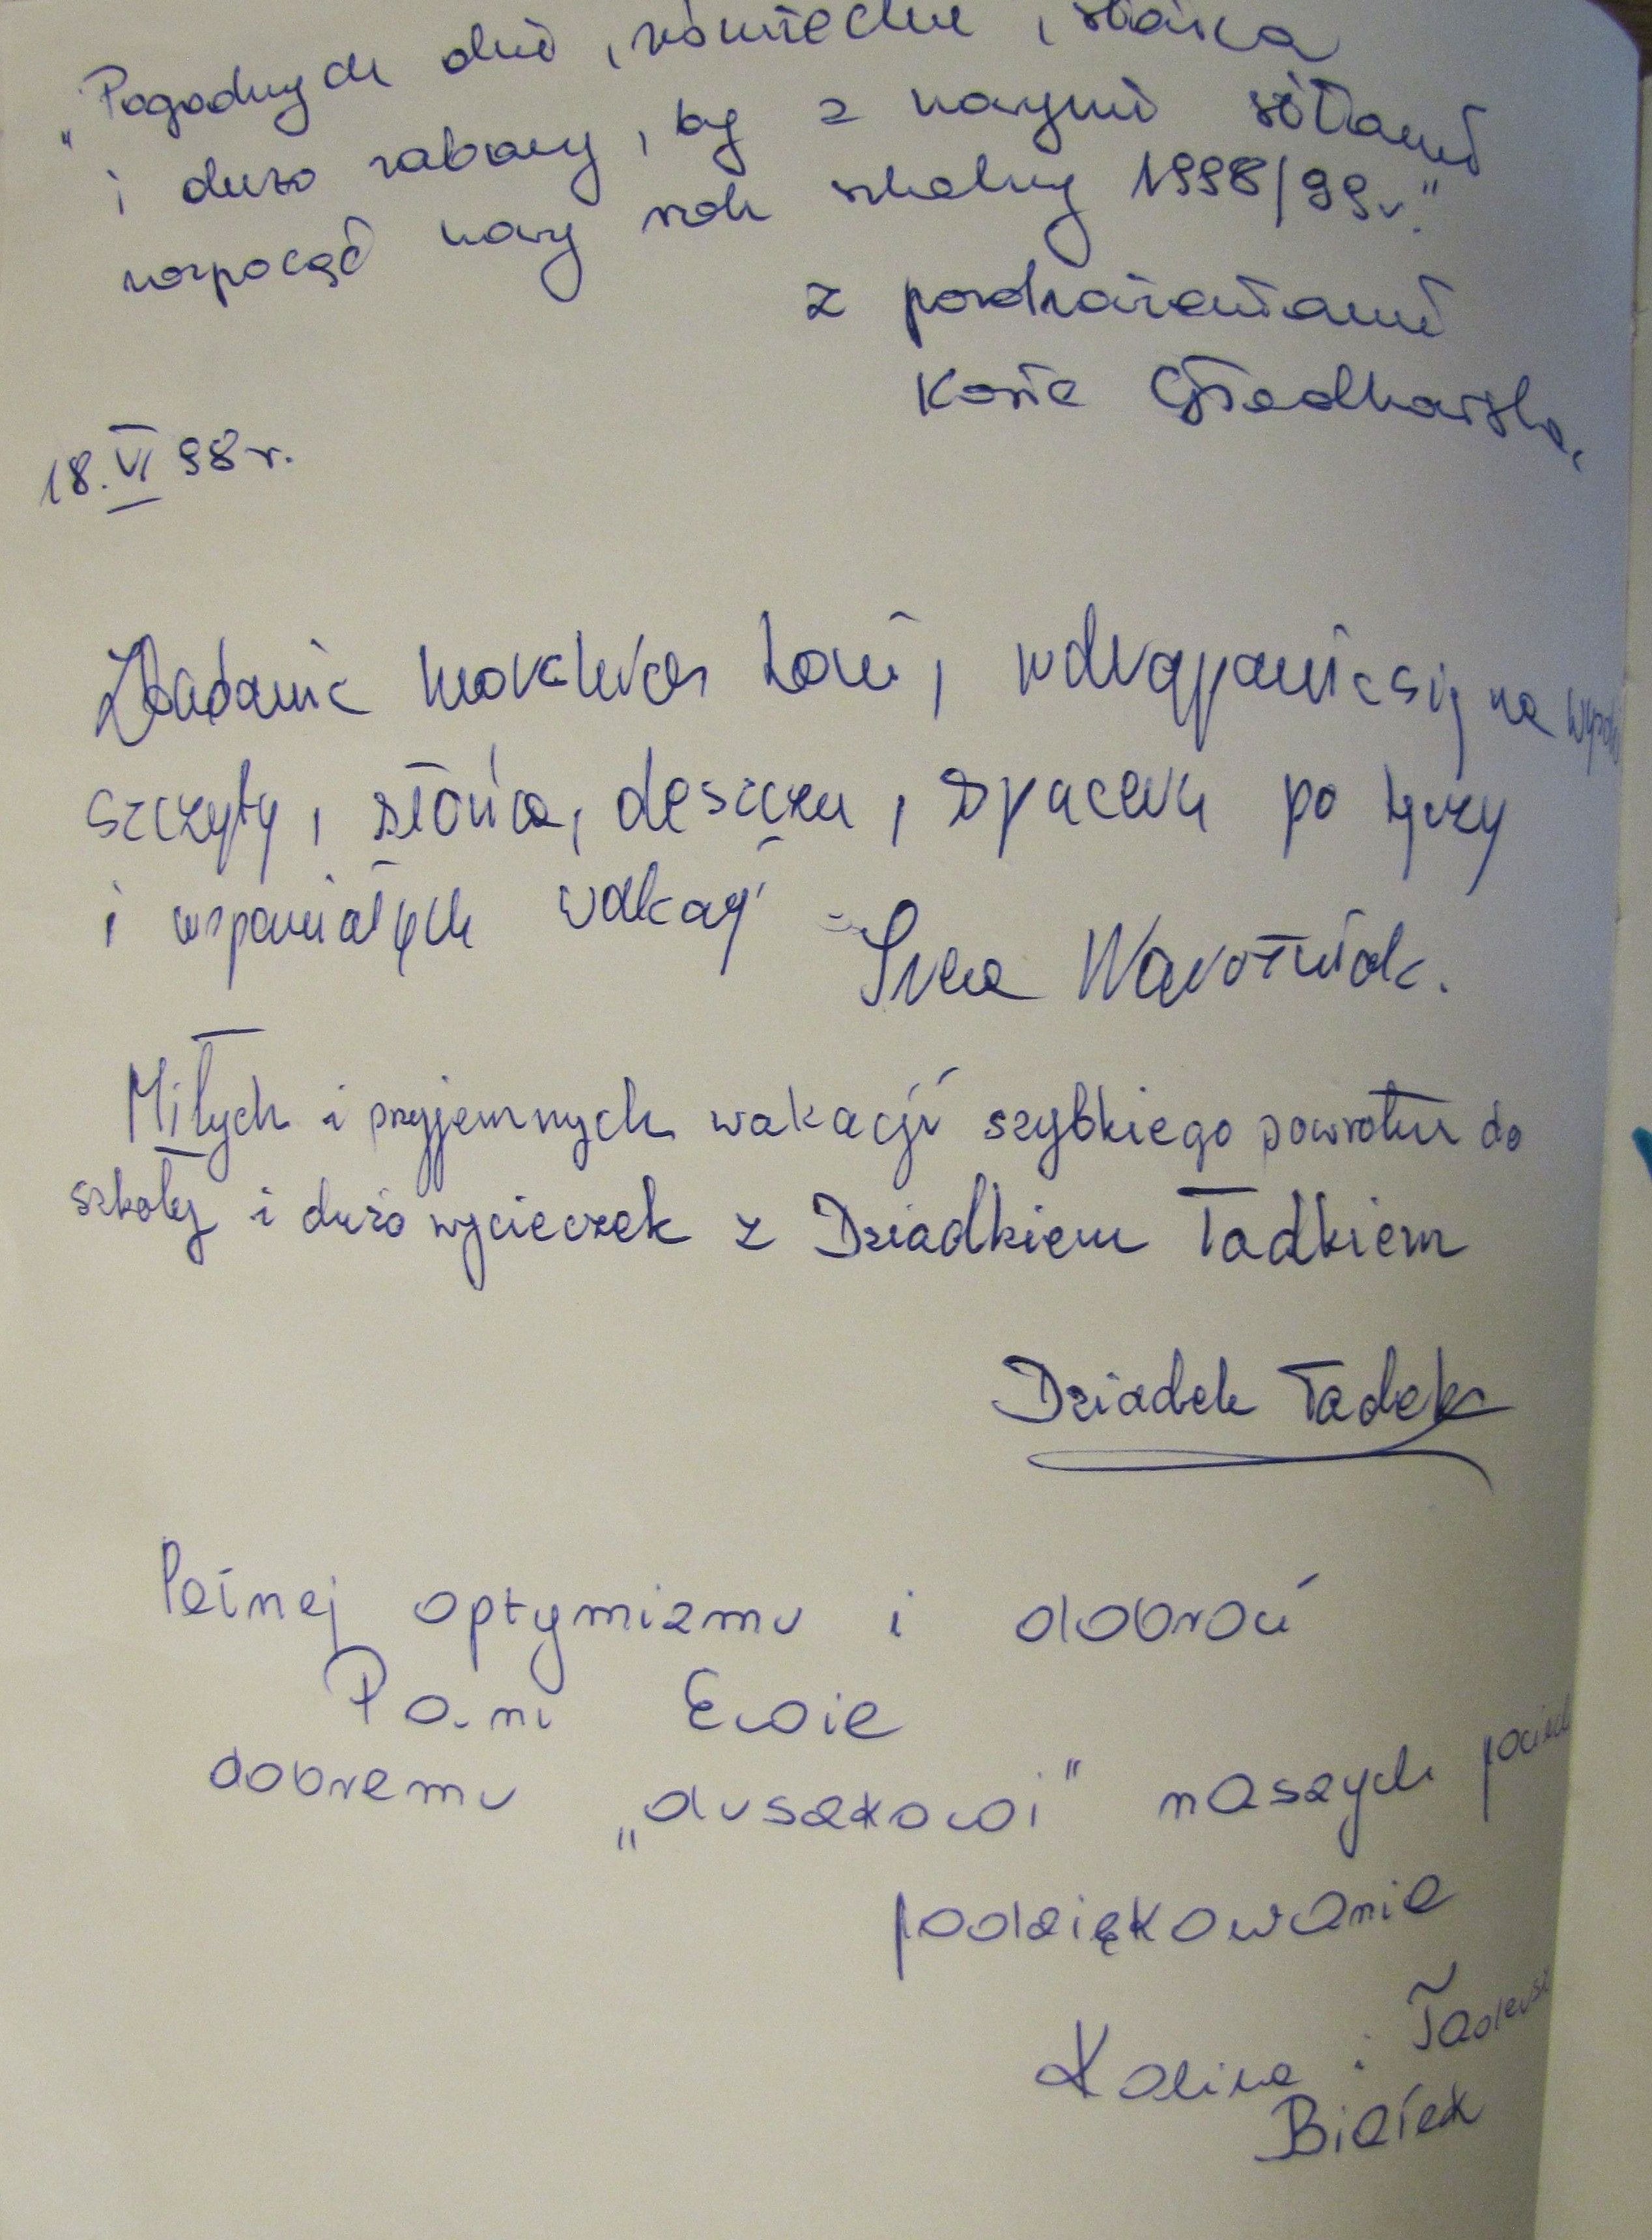 "Pogodnych dni, uśmiechu, słońca
i dużo zabawy, by z nowymi siłami
rozpocząć nowy rok szkolny 1998/99r."
z pozdrowieniami
Kasia
18.VI 98r.
Zbadanie morskiego , wdrapanie się na
szczyty, słońca, deszczu, spaceru po tęczy
i wspaniałych wakacji
Irena Nawoźniak.
Miłych i przyjemnych wakacji szybkiego powrotu do
szkoły i dużo wycieczek z Dziadkiem Tadkiem
Dziadek Tadek
Pełnej optymizmu i dobroci
Pani Ewie
dobremu „duszkowi" naszych pociech
podziękowanie
Kalina i Tadeusz
Białek